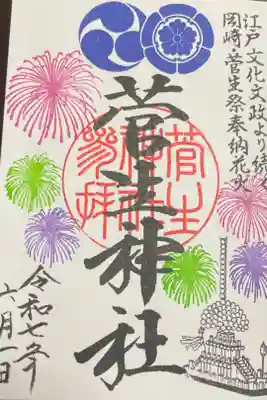 江戸文化文政より続く
岡崎・菅生祭奉納花火
菅生神社
菅生神社参拝
令和七年
六月一日